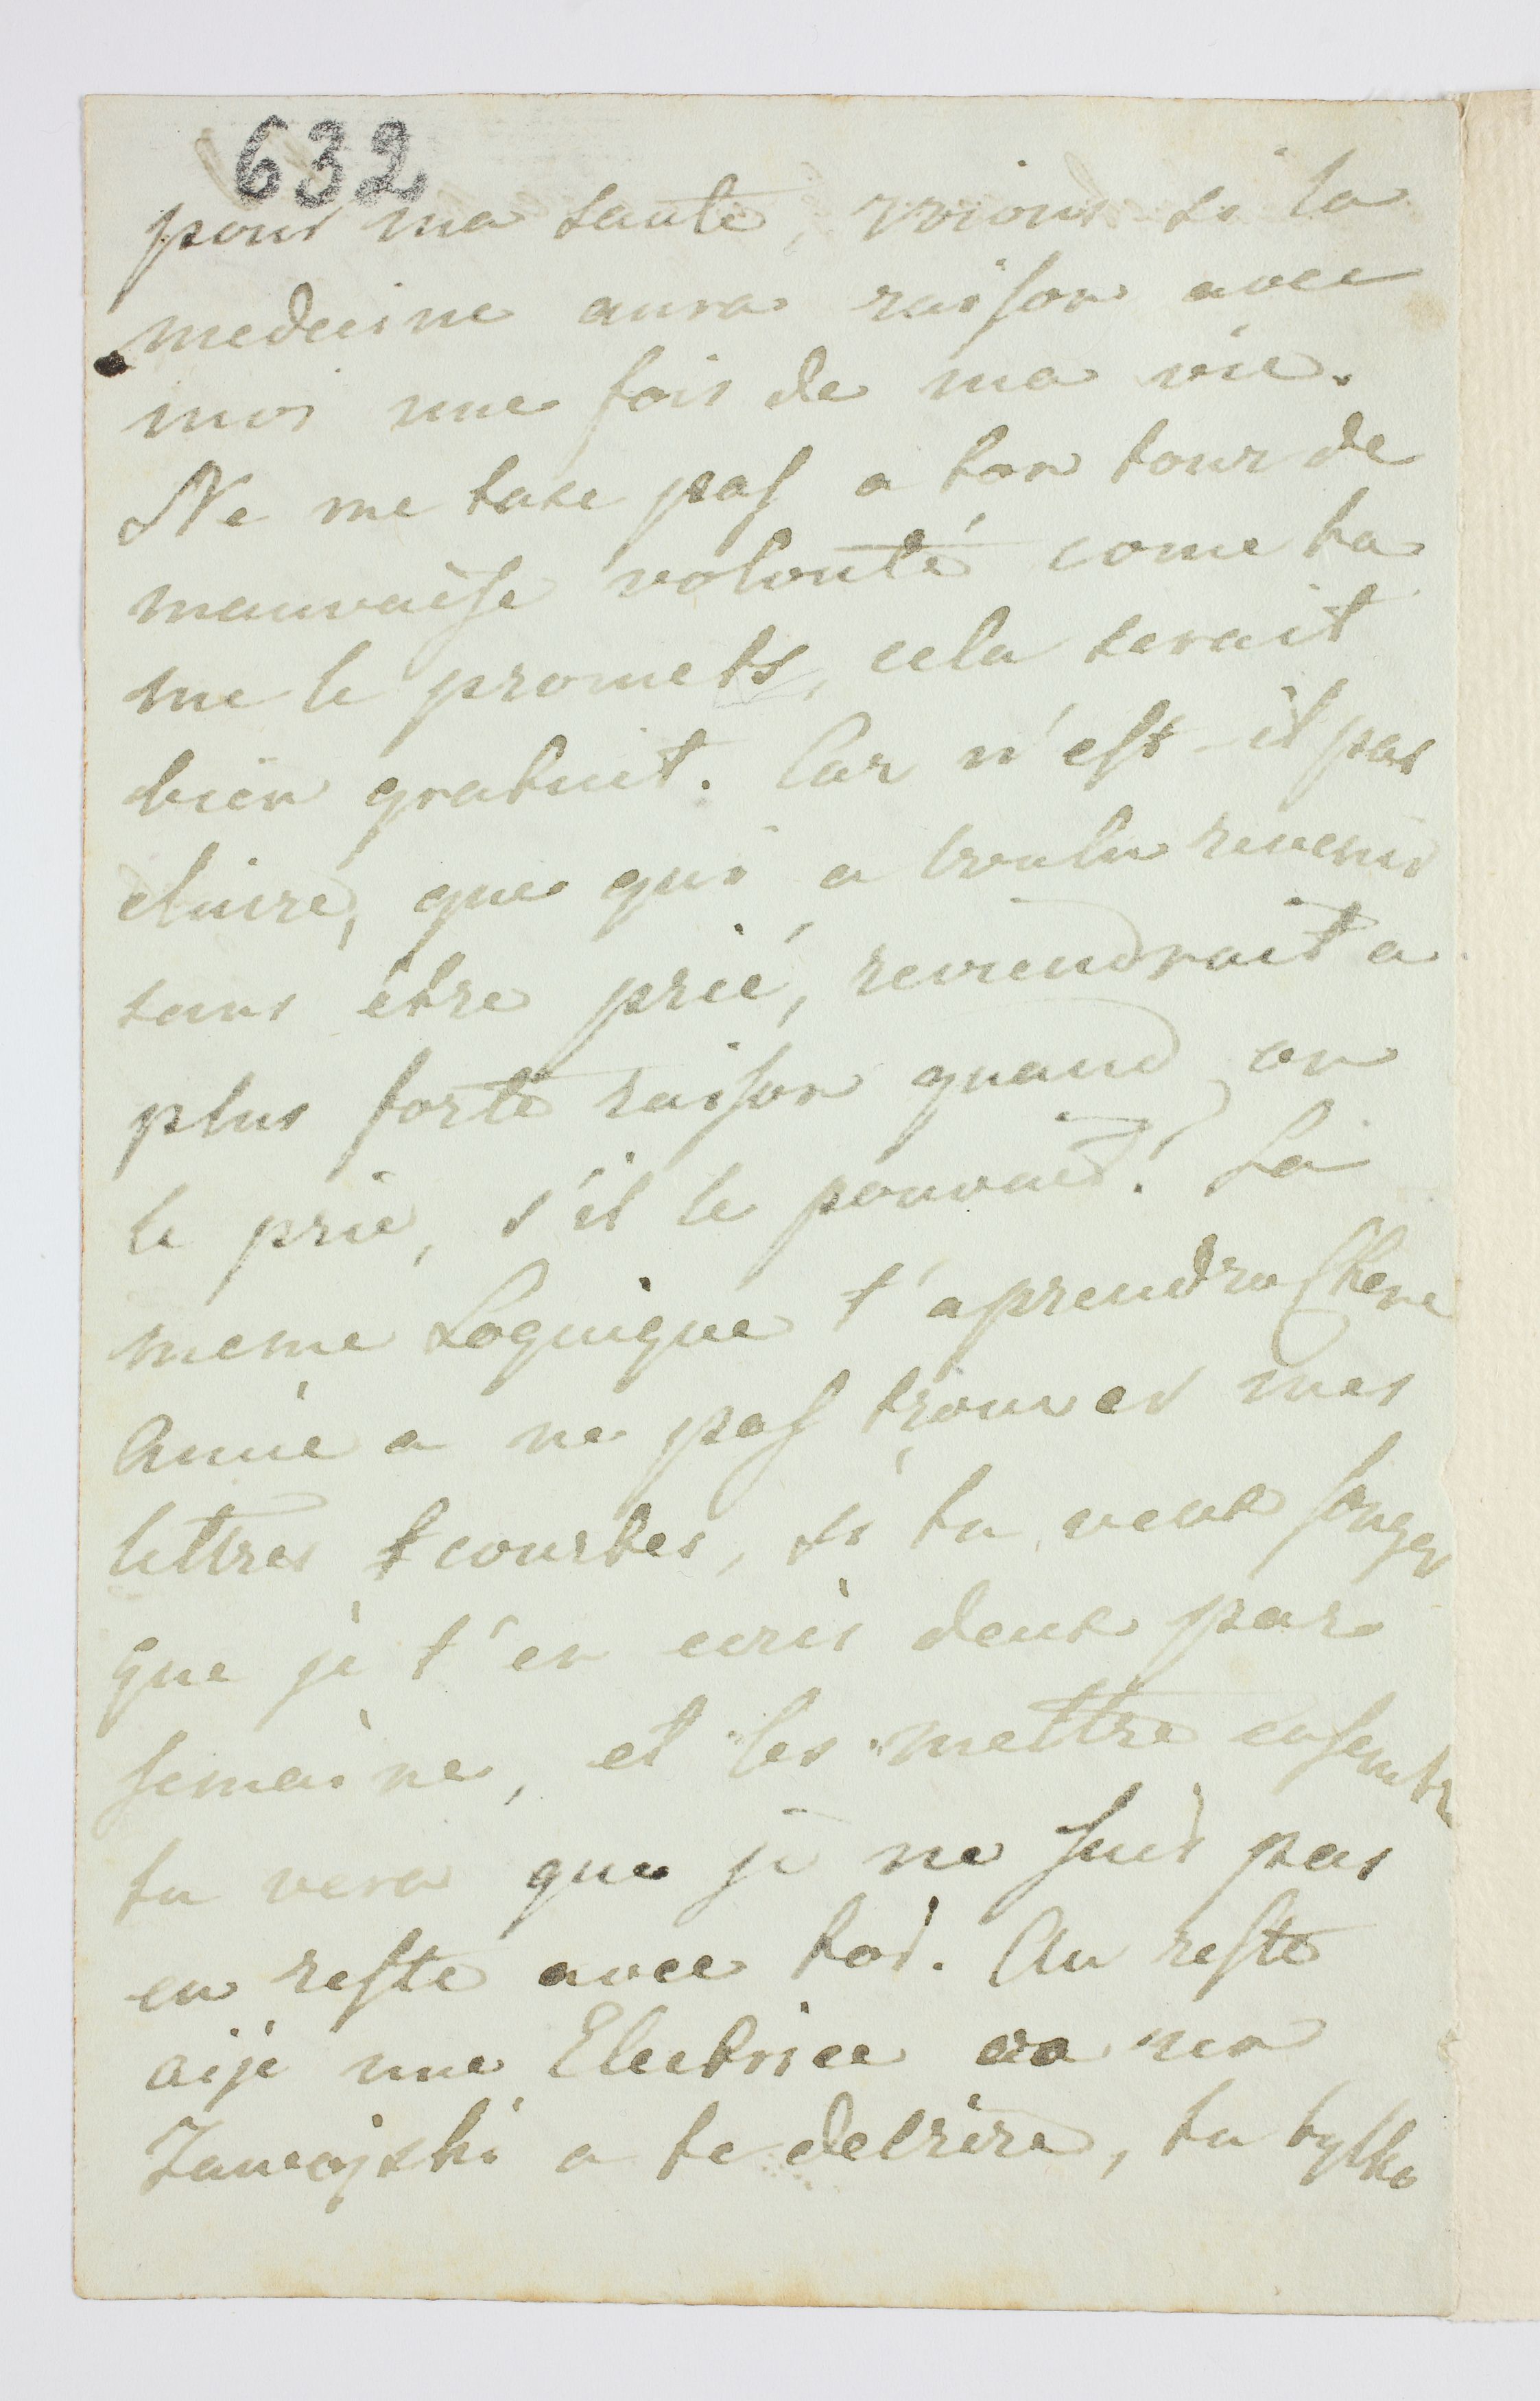 632
pour ma santé, vrions si la
medecine aura raison avec
moi une fois de ma vie.
Ne me taxe pas a ton tour de
mauvaise volonté come tu
me le promets, cela serait
bien gratuit. Car n'est-il pas
claire, que qui a voulu revenir
sans être prié, reviendrait a
plus forte raison quand on
le prie, s'il le pouvait! La
meme Loguique t'aprendra Chere
Amie a ne pas trouver mes
lettres courtes, si tu veux songer
que je t'en ecris deux par
semaine, et les mettre ensemble
tu vera que je ne suis pas
en reste avec toi. Au reste
aije une Electrice ou un
Zamojski a te decrire, tu tylko